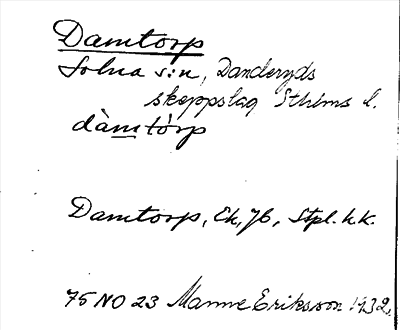 Damtorp
Solna s:n, Danderyds
skeppslag Sthlms l.
dàmtórp
Damtorp, Ek, 7b, Stpl. h.k.
75 NO 23 Manne Eriksson 1932.